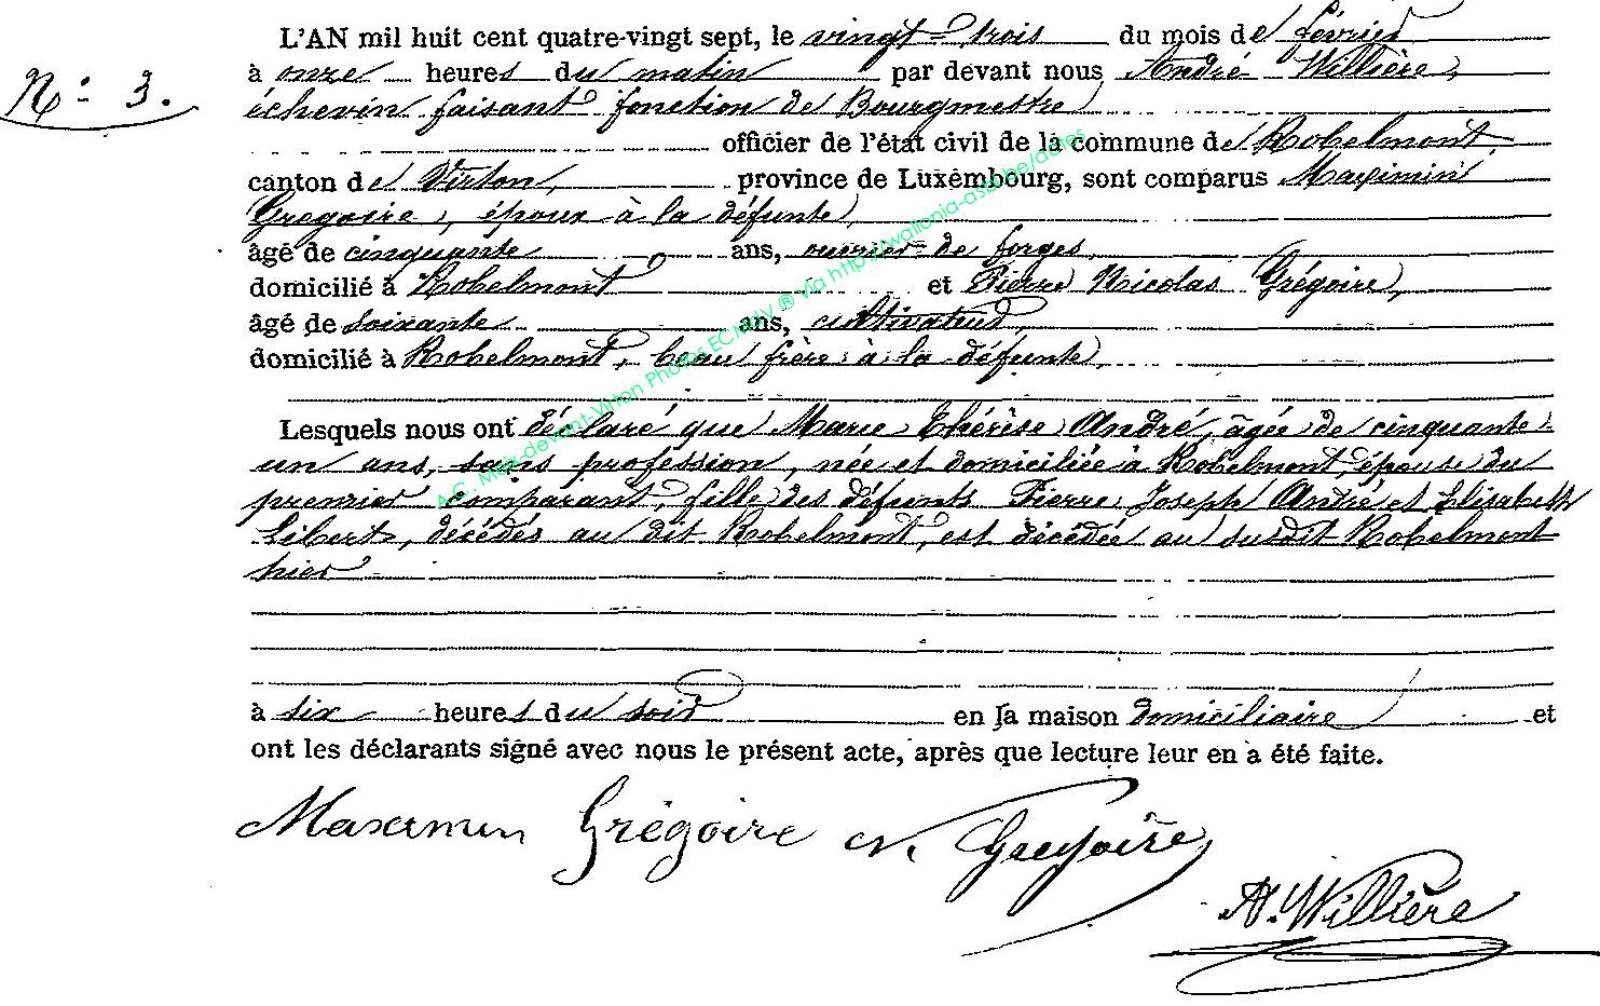 L'AN mil huit cent quatre-vingt sept, le vingt-trois du mois de février
à onze heures du matin par devant nous André Willière,
N° 3.
échevin faisant fonction de Bourgmestre
officier de l'état civil de la commune de Robelmont,
canton de Virton, province de Luxembourg, sont comparus Maximin
Gregoire, époux à la défunte,
âgé de cinquante ans, ouvrier de forges,
domicilié à Robelmont et Pierre Nicolas Grégoire,
âgé de soixante ans, cultivateur,
domicilié à Robelmont, beau frère à la défunte,
Lesquels nous ont déclaré que Marie Thérèse André, âgée de cinquante
un ans, sans profession, née et domiciliée à Robelmont, épouse du
premier comparant, fille des défunts Pierre Joseph André et Elisabeth
Libert, décédés au dit Robelmont, est décédée au susdit Robelmont
hier
à six heures du soir en la maison domiciliaire et
ont les déclarants signé avec nous le présent acte, après que lecture leur en a été faite.
Maxamen Grégoire N. Gregoire
A. Willière
A.C. Meix-devant-Virton Photos ECM-IV ® Via http://wallonia-asbl.be/dates